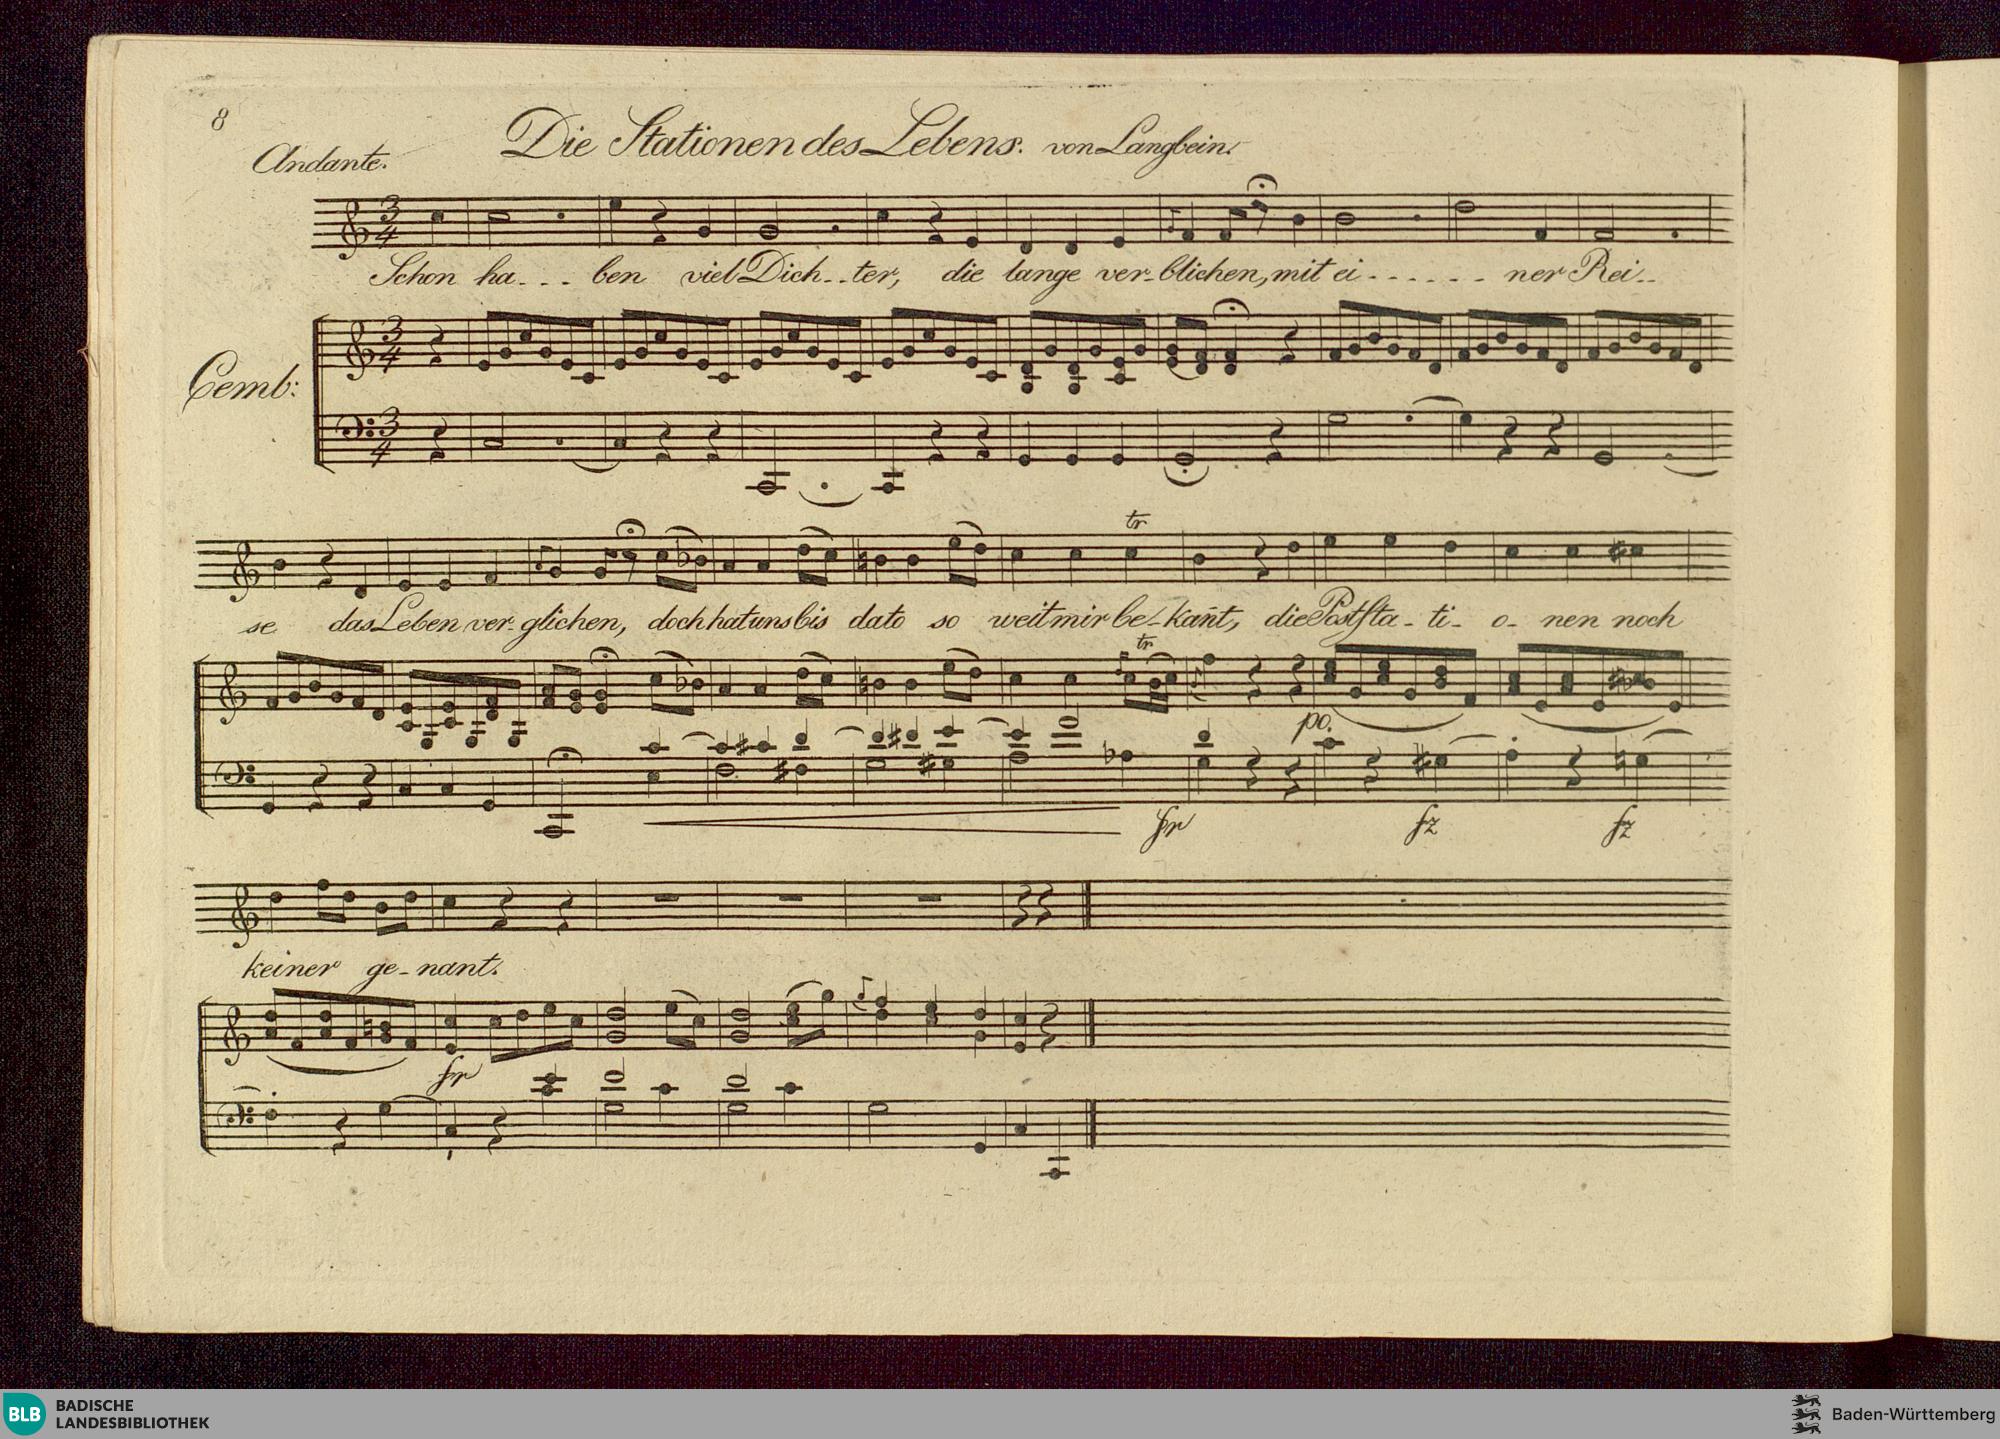 8
Die Stationen des Lebens. von Langbein.
Andante.
Schon ha - - - ben viel Dich - - ter, die lange ver - blichen, mit ei - - - - - - ner Rei - -
Cemb:
tr
se das Leben ver - glichen, doch hat uns bis dato so weit mir be - kan̄t, die Postſta - ti - o - nen noch
tr
po.
fr fz fz
keiner ge - nant.
fr
BLB BADISCHE
LANDESBIBLIOTHEK
Baden-Württemberg